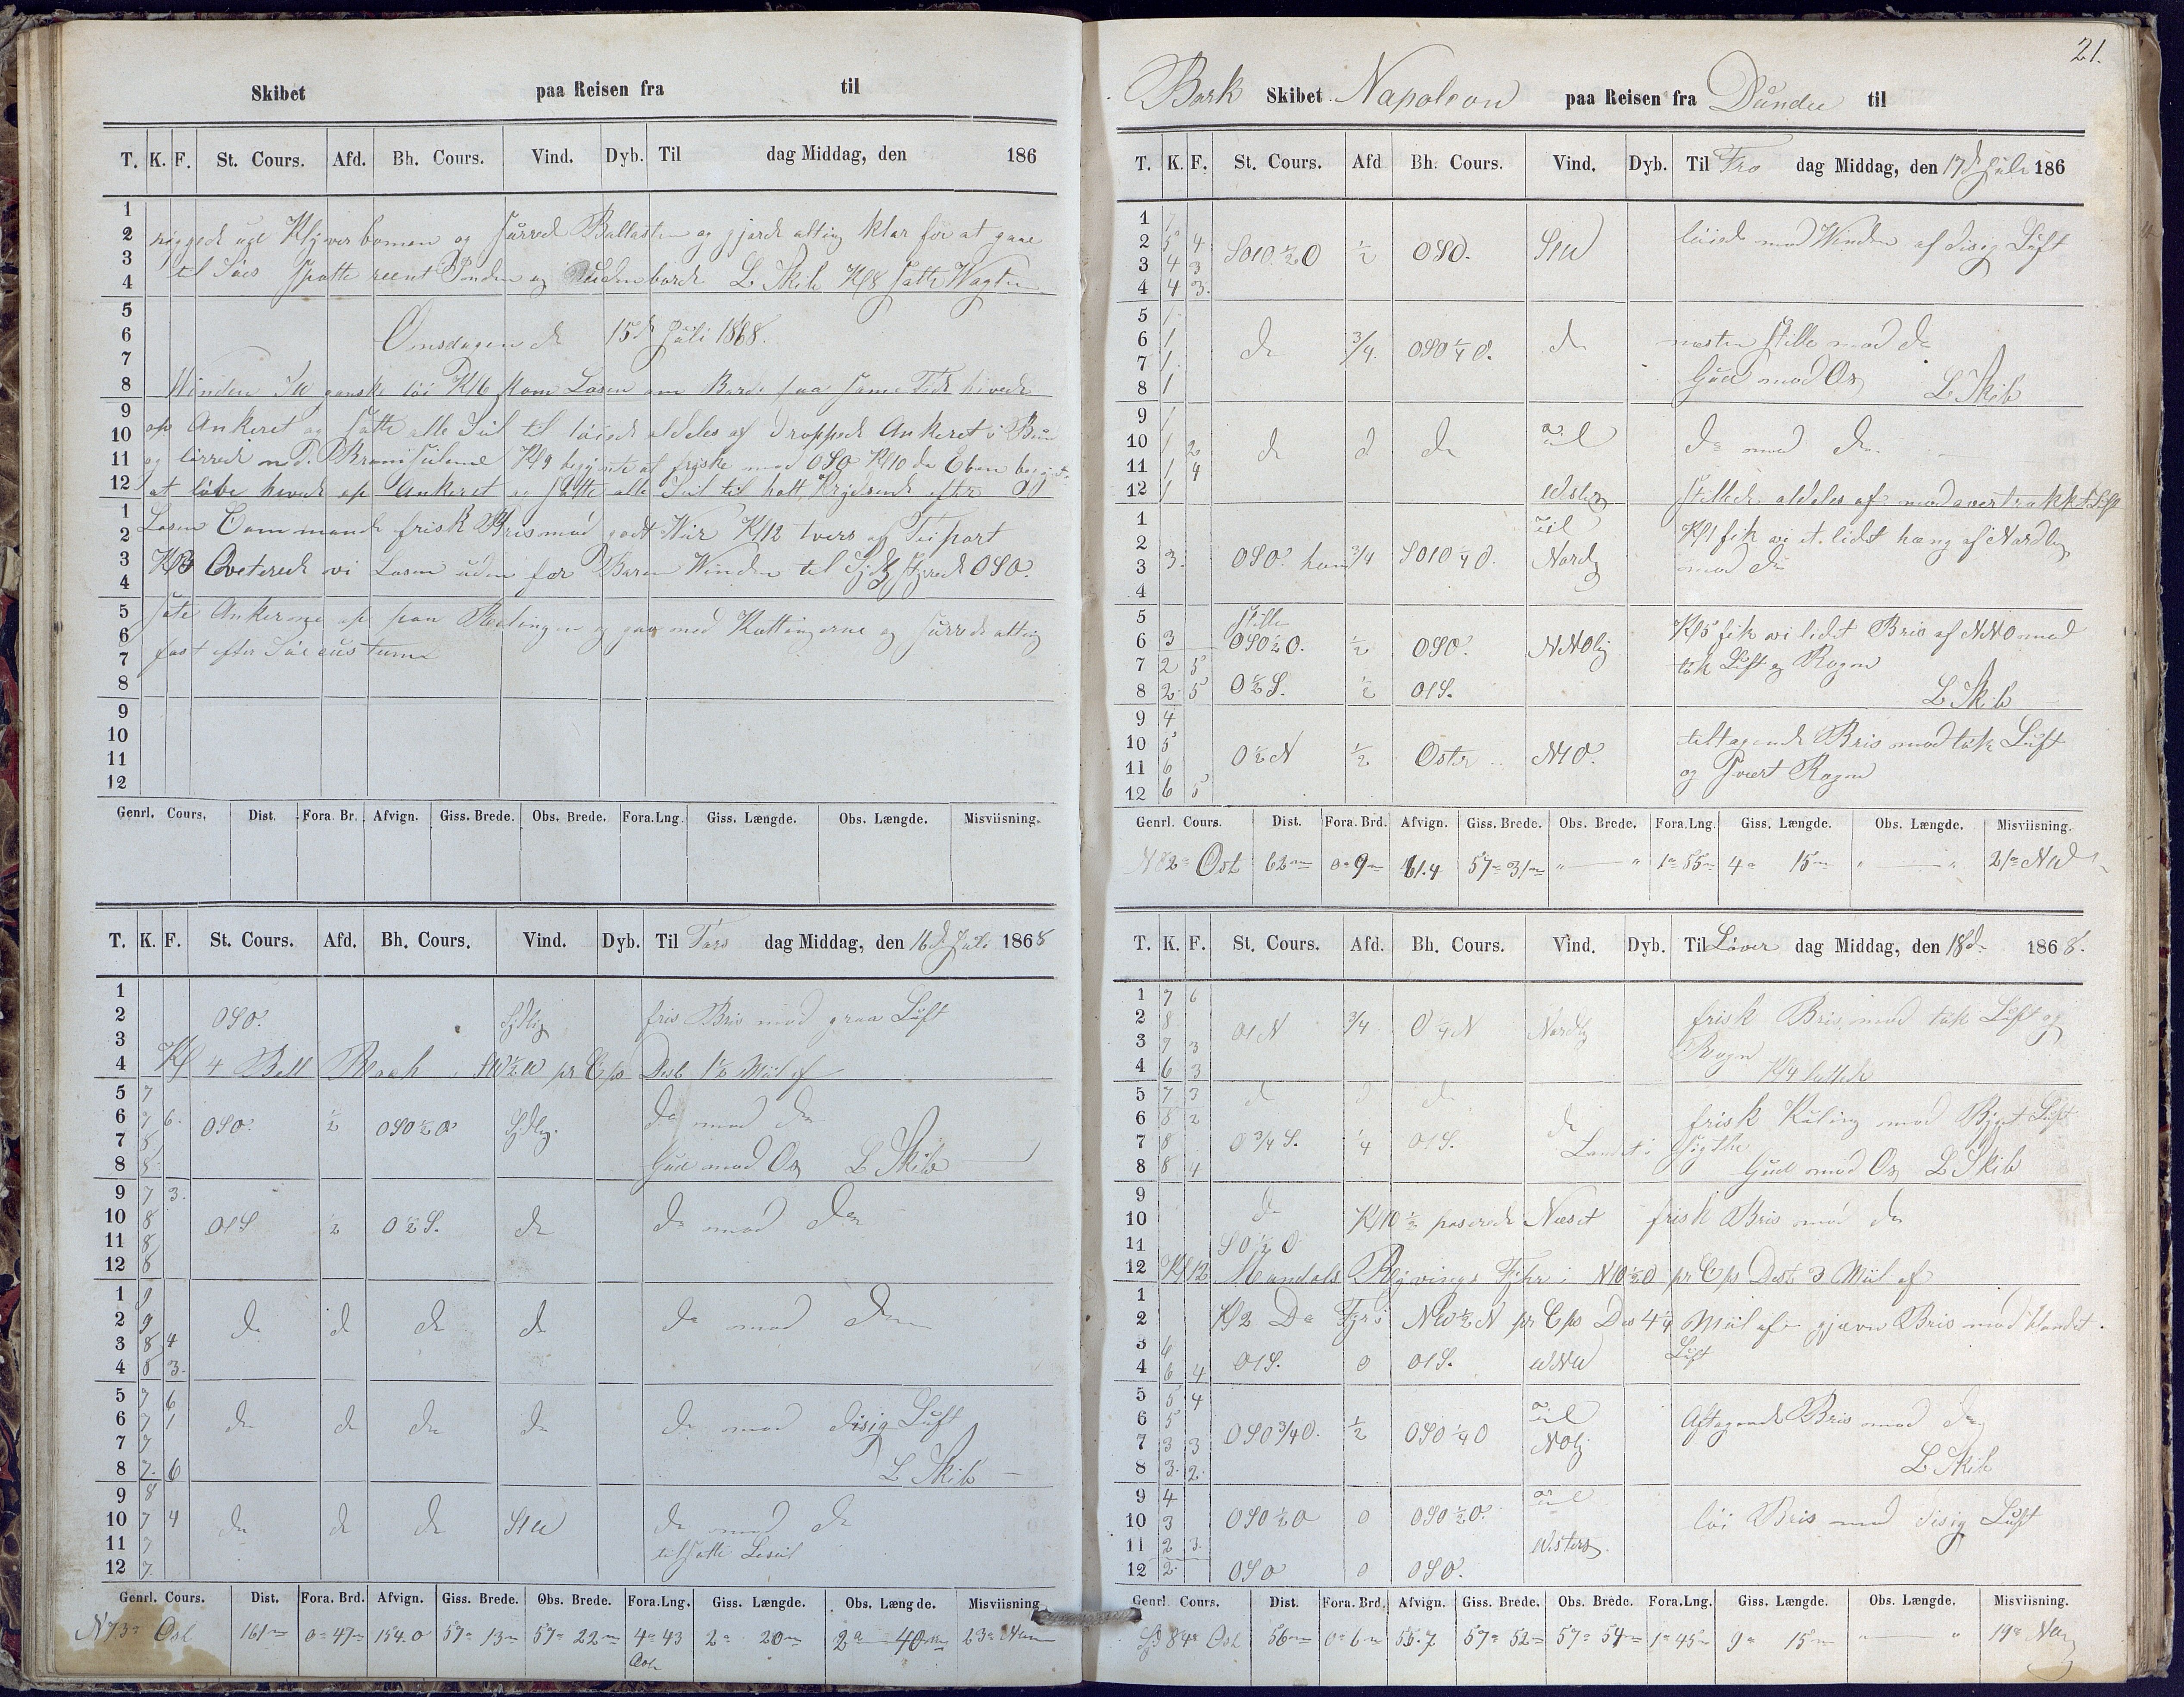 Skibet paa Reisen fra til
T. K. F. St. Cours. Afd. Bh. Cours. Vind. Dyb. Til dag Middag, den 186
1
2 rigget ut Klyverbomen og surred Ballasten og gjorde alting klar for at gaae
3
4 til Søes satte reent L Skib Kl 8 satte Wagten
5
6 Onsdagen d 15d Juli 1868.
7
8 Winden SW ganske löi Kl 6 kom Losen om Borde paa samme Tid hivede
9
10 op Ankeret og satte alle Seil til löiede aldeles af droppede Ankeret i Bund
11 og Kl 9 begynte at friske med OSO Kl 10 da Eben begynte
12 at löbe hivede op Ankeret og satte alle Seil til
1 Losen Commande frisk Bris med godt Veir Kl 12 tvers af Teiport
2
3 Kl 3 qviterede vi Losen uden for Baren Winden til Sydlig styrede OSO.
4
5 sate Ankerne op paa Relingen og med Kettingerne og surrede alting
6 fast efter Söe custume
7
8
9
10
11
12
Genrl. Cours. Dist. Fora. Br. Afvign. Giss. Brede. Obs. Brede. Fora.Lng. Giss. Længde. Obs. Længde. Misviisning.
T. K. F. St. Cours. Afd. Bh. Cours. Vind. Dyb. Til Tors dag Middag, den 16d Juli 1868
1
2 OSO. Sydlig fris Bris med graa Luft
3
4 Kl 4 Bell Rock i SW½W pr Cps Dist 1½ Miil af
5 7
6 7 6 OSO. ½ OSO½O Sydlig. do med do
7 8
8 8 Gud med Os L Skib
9 7 3
10 8 O1S ½ O½S. do do med do
11 8
12 8
1 9
2 9 do d do do do med do
3 8 4
4 8 3
5 7 6
6 7 1 do d do do do med disig Luft
7 7
8 7 6 L Skib
9 8
10 7 4 do do do SW do med do
11 7 tilsatte Leseil
12 7
Genrl. Cours. Dist. Fora. Brd. Afvign. Giss. Brede. Obs. Brede. Fora.Lng. Giss. Længde. Obs. Længde. Misviisning
N 73° Ost 161m 0° 47m 154.0 57° 13m 57° 22m 4° 43 2° 20m 2° 40m 23° NW
Ost
21.
Bark Skibet Napoleon paa Reisen fra Dundee til
T. K. F. St. Cours. Afd Bh. Cours. Vind. Dyb. Til Fre dag Middag, den 17d Juli 186
1
2 5 4 löiede med Winden af disig Luft
3 4 3 SO1O.½O ½ OSO. SW
4 4 3
5 1
6 1 do ¾ OSO¼O. do næsten stille med do
7 1
8 1 Gud med Os L Skib
9 1
10 1 2 do d do do med do
11 1 4
12 1 Westlig stillede aldeles af med overtrukket Luft
1 til Kl 1 fik vi et lidet hæng af Nordlig
2
3 3 OSO. ¾ SO1O¼O. Nordlig med do
4
5 stille Kl 5 fik vi lidt Bris af NNO med
6 3 OSO½O. ½ OSO. NNOlig
7 2 5 tük Luft og Ragen
8 2 5 O½S. ½ O1S. L Skib
9 4
10 5 tiltagende Bris med tük Luft
11 6 O½N ½ Oster N1O.
12 6 5 og svert Ragen
Genrl. Cours. Dist. Fora. Brd. Afvign. Giss. Brede. Obs. Brede. Fora.Lng. Giss. Længde. Obs. Længde. Misviisning.
N 82° Ost 62m 0° 9m 61.4 57° 31m " — " 1° 55m 4° 15m " — " 21° NW
T. K. F. St. Cours. Afd. Bh. Cours. Vind. Dyb. Til Löver dag Middag, den 18d 1868.
1 7 6
2 8 O1N ¾ O¼N Nordlig frisk Bris med tük Luft og
3 7 3 Ragen
4 6 3 Kl 4
5 7 3 d d do
6 8 2 do frisk Kuling med Byget Luft
7 8 O¾S. ¼ O1S. Landet i Sigthe
8 8 4 Gud med Os L Skib
9
10 do Kl 10½ paserede Neset frisk Bris med do
11 SO½O
12 Kl 12 Mandals Fyhr i N1O½O pr Cps Dist 3 Miil af
1
2 Kl 2 Do Fyr i NW½N pr Cps Dis 4¼ Miil af gjævn Bris med Klaret
3 6 Luft
4 6 4 O1S. 0 O1S. WNW
5 5 4 til
6 5 OSO¾O. ½ OSO¼O Aftagende Bris med do
7 3 3 NOlig
8 3 2 L Skib
9 4 til
10 3 OSO½O 0 OSO½O. löi Bris med disig Luft
11 2 3 Western
12 2 OSO 0 OSO.
Genrl. Cours. Dist. Fora. Brd. Afvign. Giss. Brede. Obs. Brede. Fora.Lng. Giss. Længde. Obs. Længde. Misviisning.
84° Ost 56m 0° 6m 55.7 57° 52m 57° 54m 1° 45m 9° 15m " " 19° NW